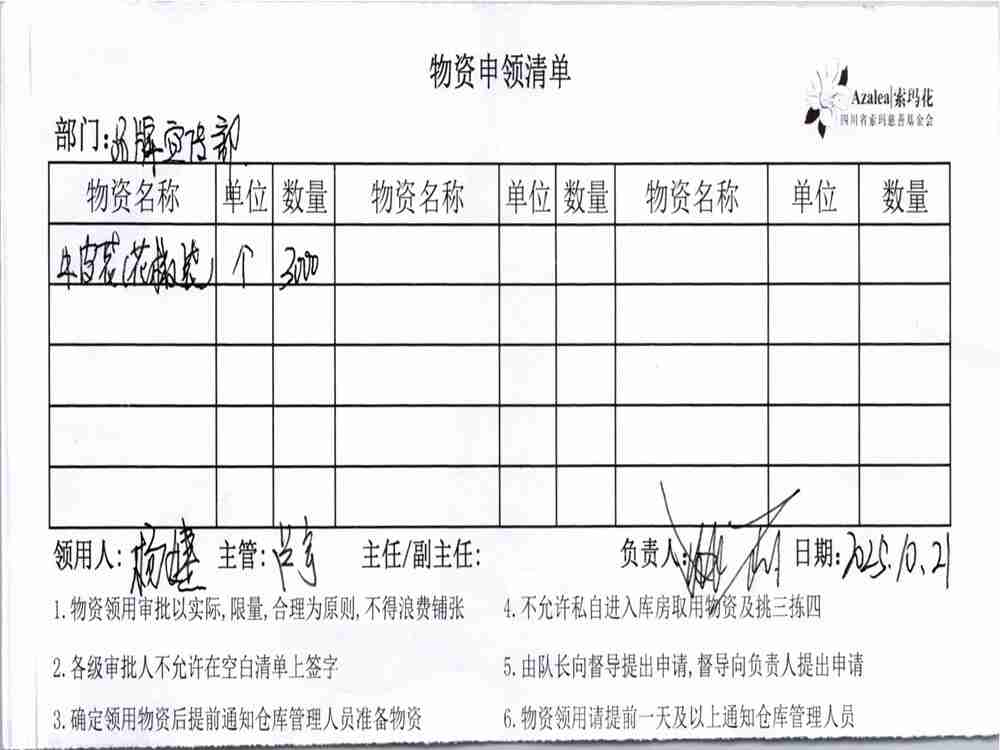 物资申领清单
Azalea|索玛花
四川省索玛慈善基金会
部门:品牌宣传部
物资名称 单位 数量 物资名称 单位 数量 物资名称 单位 数量
牛皮袋(花椒袋) 个 3000
领用人: 主管: 主任/副主任: 负责人: 日期:2025.10.21
1.物资领用审批以实际,限量,合理为原则,不得浪费铺张
4.不允许私自进入库房取用物资及挑三拣四
2.各级审批人不允许在空白清单上签字
5.由队长向督导提出申请,督导向负责人提出申请
3.确定领用物资后提前通知仓库管理人员准备物资
6.物资领用请提前一天及以上通知仓库管理人员